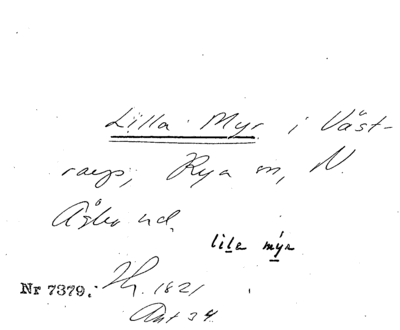 Lilla Myr i Väst-
raryp, Rya sn, N.
Åsbo hd.
lila mýa
Nr 7379. Hr. 1821
Ant 34